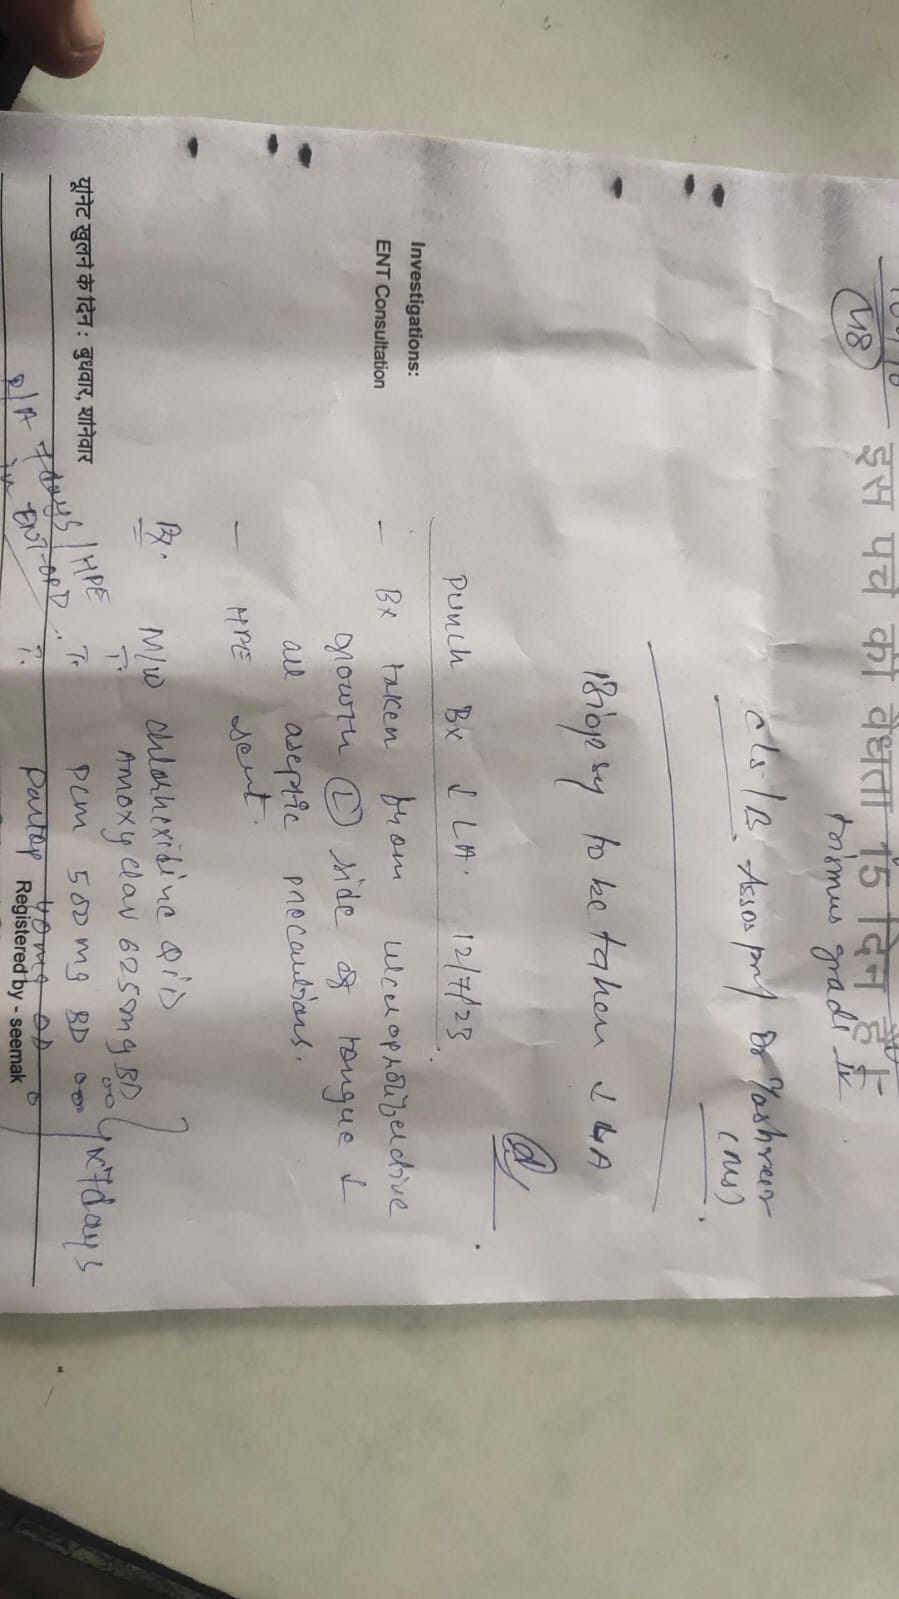 48
इस पर्चे की वैधता 15 दिन है
trismus grade IV
c/s/B Assos prof Dr Yashveer
(ms)
Biopsy to be taken ↓ LA
Investigations:
ENT Consultation
Punch Bx ↓ LA. 12/7/23
- Bx taken from ulceroproliferative
growth (L) side of tongue ↓
all aseptic precautions.
- HPE sent.
Rx. M/w chlorhexidine QID
T. Amoxyclav 625mg BD
T. PCM 500mg BD
x 7days
T. Pantop 40mg OD
यूनिट खुलने के दिन : बुधवार, शनिवार
R/A 7days / HPE
in ENT-OPD.
Registered by - seemak